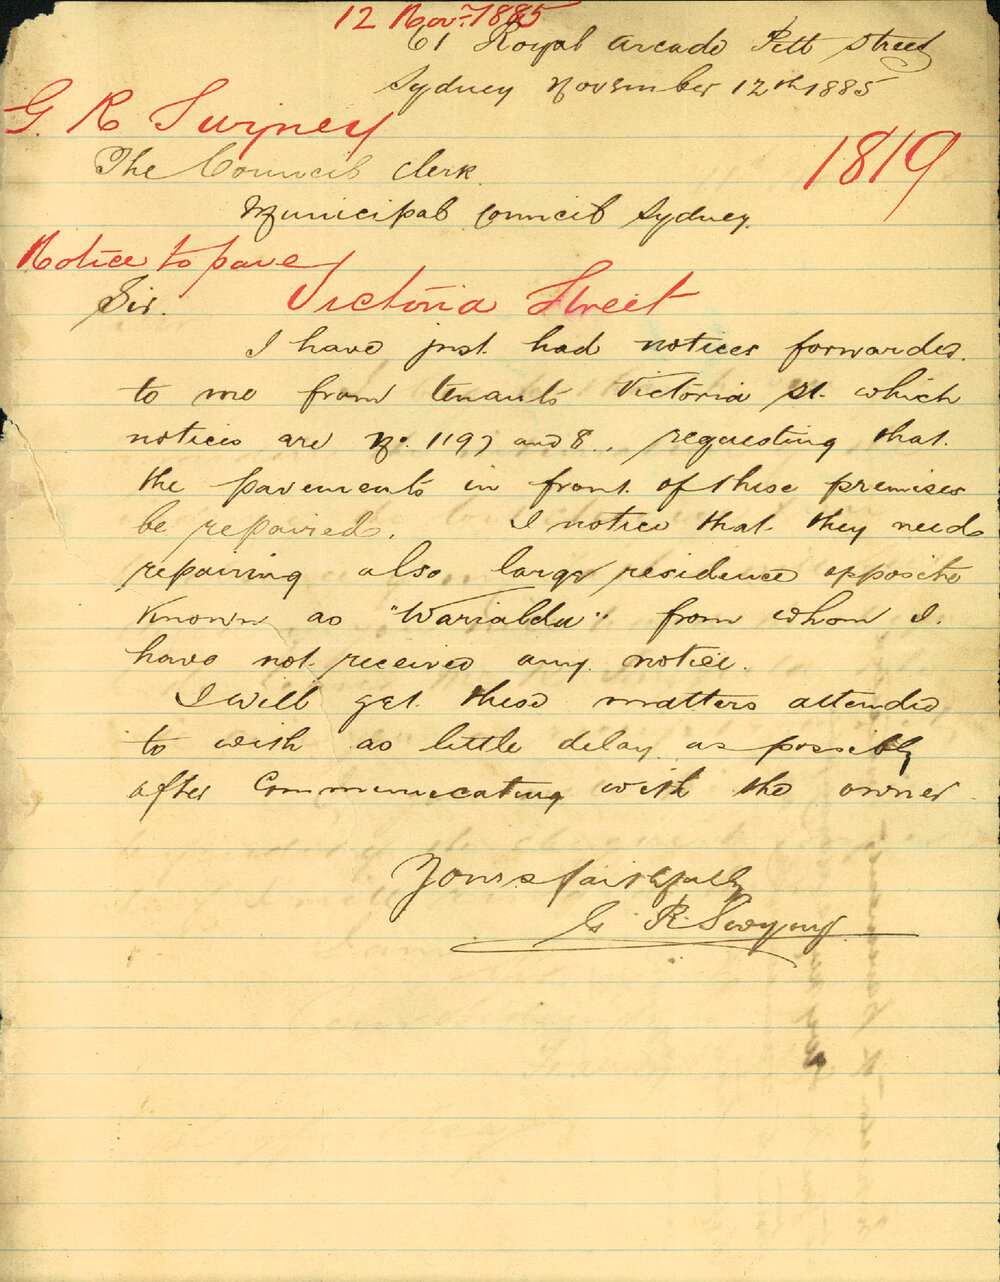 12 Nov.r 1885
61 Royal Arcade Pitt Street
Sydney November 12th 1885
G. R Swyney
1819
The Council Clerk
Municipal Council Sydney.
Notice to pave
Victoria Street
Sir.
I have just had notices forwarded
to me from tenants Victoria St. which
notices are No. 1197 and 8., requesting that
the pavements in front of these premises
be repaired. I notice that they need
repairing also large residence opposite
known as "Warialda" from whom I
have not received any notice.
I will get these matters attended
to with as little delay as possibly
after communicating with the owner
Yours faithfully
G R Swyny